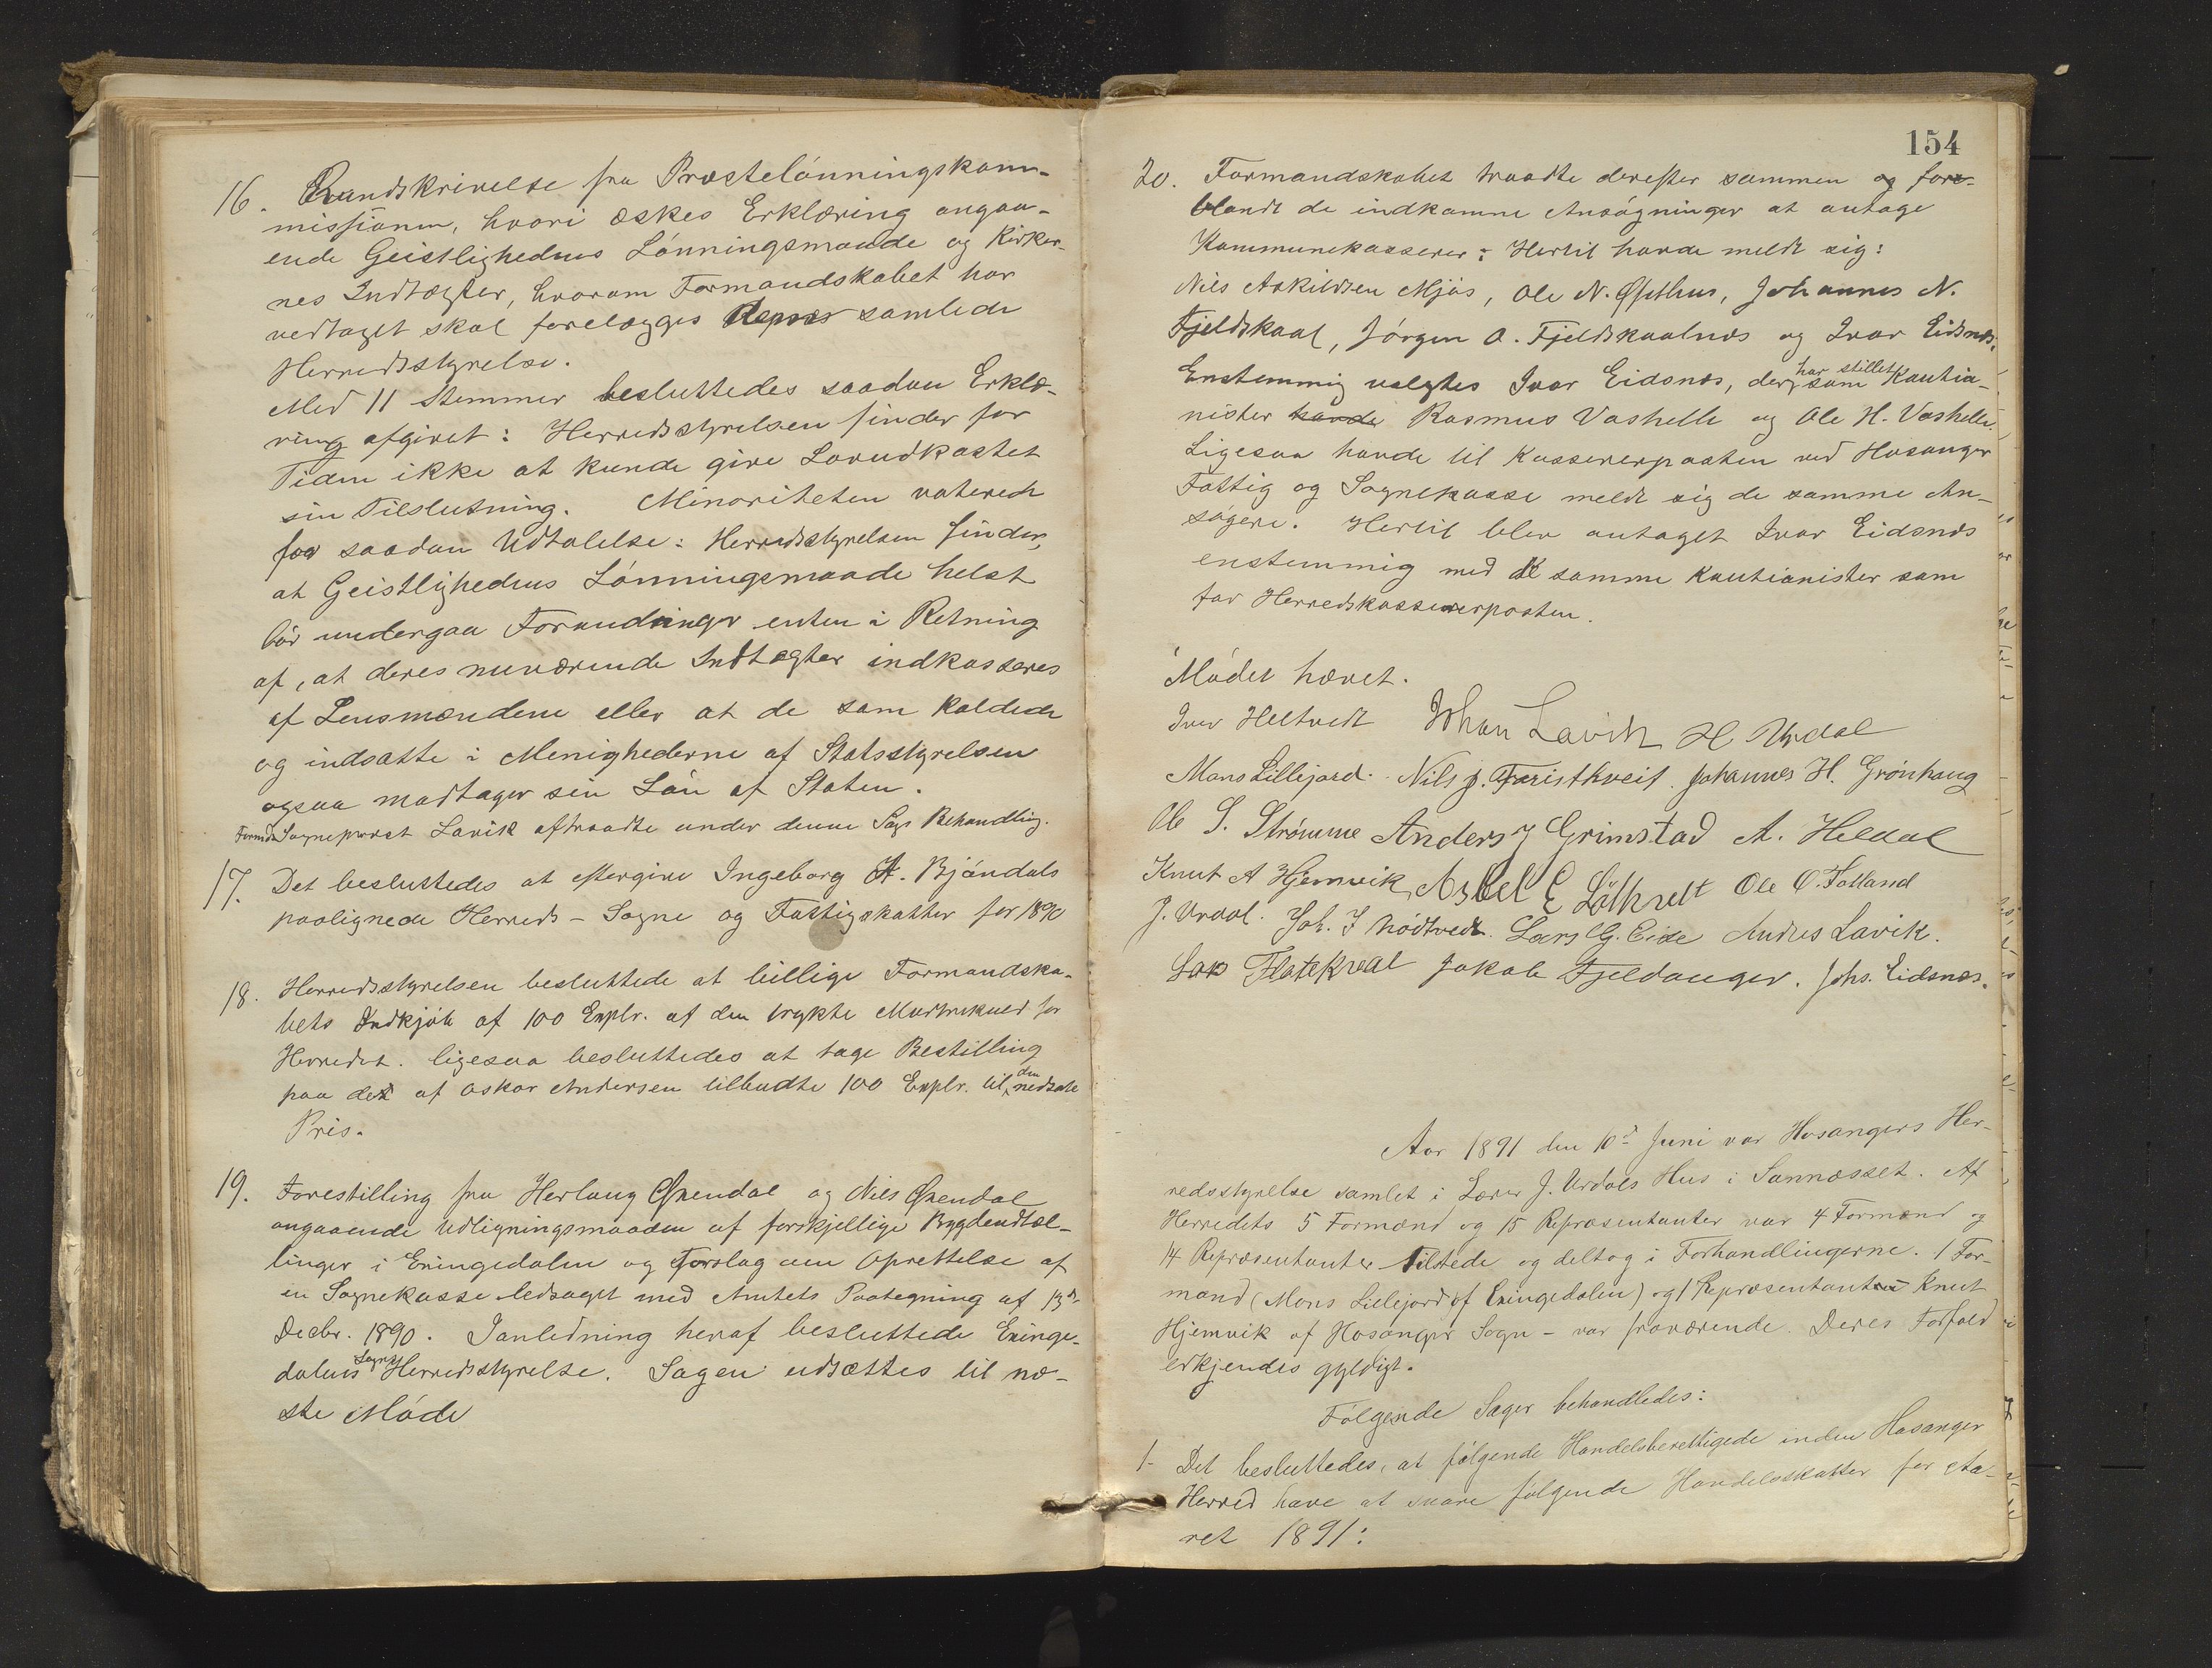 16. Rundskrivelse fra Præstelønningskom-
missionen, hvori æskes Erklæring angaa-
ende Geistlighedens Lønningsmaade og Kirker-
nes Indtægter, hvorom Formandskabet har
vedtaget skal forelægges Repræs samlede
Herredsstyrelse.
Med 11 Stemmer besluttedes saadan Erklæ-
ring afgivet: Herredsstyrelsen finder for
Tiden ikke at kunde give Lovudkastet
sin Tilslutning. Minoriteten voterede
for saadan Udtalelse: Herredsstyrelsen finder,
at Geistlighedens Lønningsmaade helst
bør undergaa Forandringer enten i Retning
af, at deres nuværende Indtægter indkasseres
af Lensmændene eller at de som kaldede
og indsatte i Menighederne af Statsstyrelsen
ogsaa modtager sin Løn af Staten.
Formd Sogneprest Lavik aftraadte under denne Sags Behandling.
17. Det besluttedes at eftergive Ingeborg A. Bjøndals
paalignede Herreds- Sogne og Fattigskatter for 1890
18. Herredsstyrelsen besluttede at billige Formandska-
bets Indkjøb af 100 Explr. af den trykte Madtrikul for
Herredet. ligesaa besluttedes at tage Bestilling
paa det af Oskar Andersen tilbudte 100 Explr. til den nedsatte
Pris.
19. Forestilling fra Herlaug Øxendal og Nils Øxendal
angaaende Udligningsmaaden af forskjellige Bygdeudtæl-
linger i Exingedalen og Forslag om Oprettelse af
en Sognekasse ledsaget med Amtets Paategning af 13de
Decbr. 1890. I anledning heraf besluttede Exinge-
dalens Sogns Herredsstyrelse. Sagen udsættes til næ-
ste Møde
154
20. Formandskabet traadte derefter sammen og for-
blandt de indkomne Ansøgninger at antage
Kommunekasserer: Hertil havde meldt sig:
Nils Askildsen Mjøs, Ole N. Øpsthus, Johannes N.
Fjeldskaal, Jørgen O. Fjeldskaalnes og Ivar Eidsnes.
Enstemmig valgtes Ivar Eidsnes, der har stillet som Kautio-
nister havde Rasmus Vashelle og Ole H. Vashelle.
Ligesaa havde til Kassererposten ved Hosanger
Fattig og Sognekasse meldt sig de samme An-
søgere. Hertil blev antaget Ivar Eidsnes
enstemmig med de samme Kautionister som
for Herredskassererposten.
Mødet hævet.
Iver Heltvedt Johan Lavik H Urdal
Mons Lillejord. Nils J. Faristhveit. Johannes H. Grønhaug
Ole S. Strømme Anders J Grimstad A. Heldal
Knut A Hjemvik, Askel E Løthvedt Ole O. Fotland
J. Urdal. Joh. J Nødtvedt. Lars G. Eide Andres Lavik.
Lars Flatekval Jakob Fjeldanger. Johs. Eidsnes.
Aar 1891 den 10de Juni var Hosangers Her-
redsstyrelse samlet i Lærer J. Urdals Hus i Sannæsset. Af
Herredets 5 Formænd og 15 Repræsentanter var 4 Formænd og
14 Repræsentanter tilstede og deltog i Forhandlingerne. 1 For-
mand (Mons Lillejord af Exingedalen) og 1 Repræsentant Knut
Hjemvik af Hosanger Sogn - var fraværende. Deres Forfald
erkjendes gyldigt.
Følgende Sager behandledes:
1. Det besluttedes, at følgende Handelsberettigede inden Hosanger
Herred have at svare følgende Handelsskatter for Aa-
ret 1891: